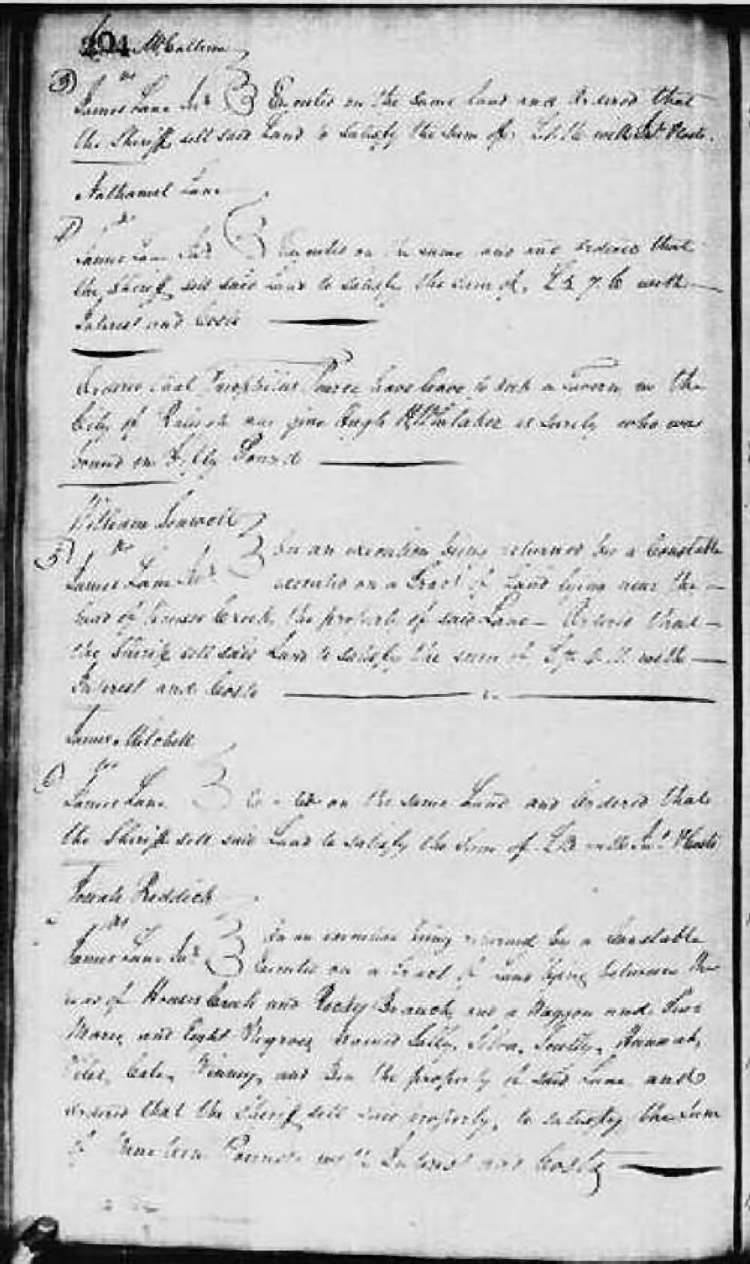 204 McCullers
3) vs
James Lane Junr Executed on the same land and Ordered that
the Sheriff sell said Land to satisfy the sum of with Int & Costs.
Nathaniel Lane
4) vs
James Lane Junr Executed on the same land and Ordered that
the Sheriff sell said Land to satisfy the sum of £4 7 6 with
Interest and Costs
Ordered that Theophilus Pearce have leave to keep a Tavern in the
City of Raleigh and give Hugh Whitaker as surety who was
bound in Fifty Pound
William Scawell
5) vs On an execution being returned by a Constable
James Lane Junr executed on a Tract of Land lying near the
head of House Creek, the property of said Lane — Ordered that
the Sheriff sell said Land to satisfy the sum of with
Interest and Costs
James Mitchell
6) vs
James Lane Executed on the same Land and Ordered that
the Sheriff sell said Land to satisfy the Sum of with Int & Costs
Josiah Reddick
vs On an execution being returned by a Constable
James Lane Junr Executed on a Tract of Land lying between the
head of House Creek and Rocky Branch, and a Waggon and
Mares, and Eight Negroes, named Sally, Hannah,
Winney, and Ben the property of said Lane and
ordered that the Sheriff sell said property, to satisfy the Sum
of Pounds with Interest and Costs